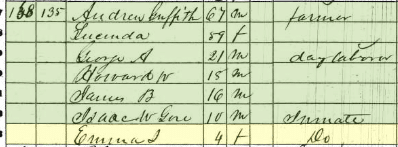 138 135 Andrew Griffith 67 m farmer
Lucinda 59 f
George A 21 m day laborer
Howard W 18 m
James B 16 m
Isaac W Gore 10 m Inmate
Emma I 4 f Do